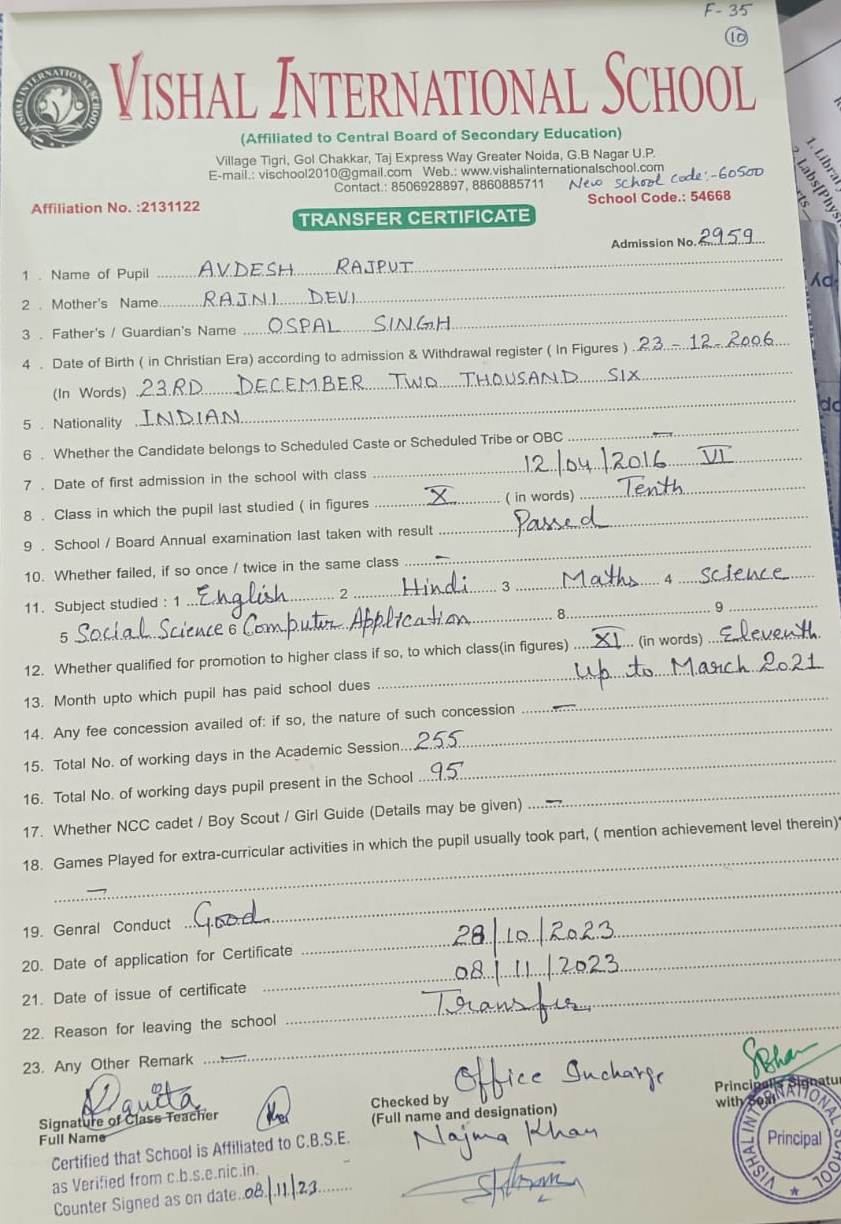 F-35
10
VISHAL INTERNATIONAL SCHOOL
(Affiliated to Central Board of Secondary Education)
Village Tigri, Gol Chakkar, Taj Express Way Greater Noida, G.B Nagar U.P.
E-mail.: vischool2010@gmail.com Web.: www.vishalinternationalschool.com
Contact.: 8506928897, 8860885711 New school code:-60500
Affiliation No. :2131122 School Code.: 54668
TRANSFER CERTIFICATE
Admission No. 2959
1 . Name of Pupil AVDESH RAJPUT
2 . Mother's Name RAJNI DEVI
3 . Father's / Guardian's Name OSPAL SINGH
4 . Date of Birth ( in Christian Era) according to admission & Withdrawal register ( In Figures ) 23-12-2006
(In Words) 23RD DECEMBER TWO THOUSAND SIX
5 . Nationality INDIAN
6 . Whether the Candidate belongs to Scheduled Caste or Scheduled Tribe or OBC —
7 . Date of first admission in the school with class 12/04/2016 VI
8 . Class in which the pupil last studied ( in figures X ( in words) Tenth
9 . School / Board Annual examination last taken with result Passed
10. Whether failed, if so once / twice in the same class —
11. Subject studied : 1 English 2 Hindi 3 Maths 4 science
5 Social Science 6 Computer Application 8 9
12. Whether qualified for promotion to higher class if so, to which class(in figures) XI (in words) Eleventh
13. Month upto which pupil has paid school dues up to March 2021
14. Any fee concession availed of: if so, the nature of such concession —
15. Total No. of working days in the Academic Session 255
16. Total No. of working days pupil present in the School 95
17. Whether NCC cadet / Boy Scout / Girl Guide (Details may be given) —
18. Games Played for extra-curricular activities in which the pupil usually took part, ( mention achievement level therein)*
—
19. Genral Conduct Good
20. Date of application for Certificate 28/10/2023
21. Date of issue of certificate 08/11/2023
22. Reason for leaving the school Transfer
23. Any Other Remark —
Office Incharge
Signature of Class Teacher
Full Name
Checked by
(Full name and designation)
Najma Khan
Principal's Signatu
with Seal
VISHAL INTERNATIONAL SCHOOL
Principal
Certified that School is Affiliated to C.B.S.E.
as Verified from c.b.s.e.nic.in.
Counter Signed as on date 08/11/23
1. Librar
2. Labs[Phys